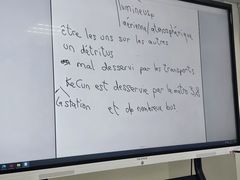 lumineuse
aérienne/atmosphérique
être les uns sur les autres
un détritus
mal desservi par les transports
est desservie par le métro 3,8
station et de nombreux bus